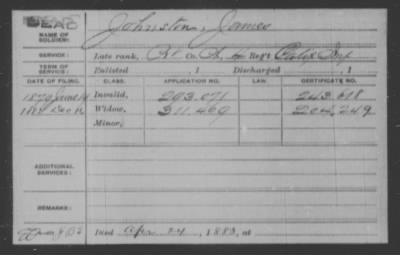 DEAD
NAME OF SOLDIER: Johnston, James
SERVICE: Late rank, Pvt Co. A, 4 Reg't
TERM OF SERVICE: Enlisted , 1 Discharged , 1
DATE OF FILING. CLASS. APPLICATION NO. LAW. CERTIFICATE NO.
1879 June 14 Invalid, 293.071 243.618
Dec Widow, 311.469 204,249
Minor,
ADDITIONAL SERVICES:
REMARKS:
Died Apr 24, 1883, at